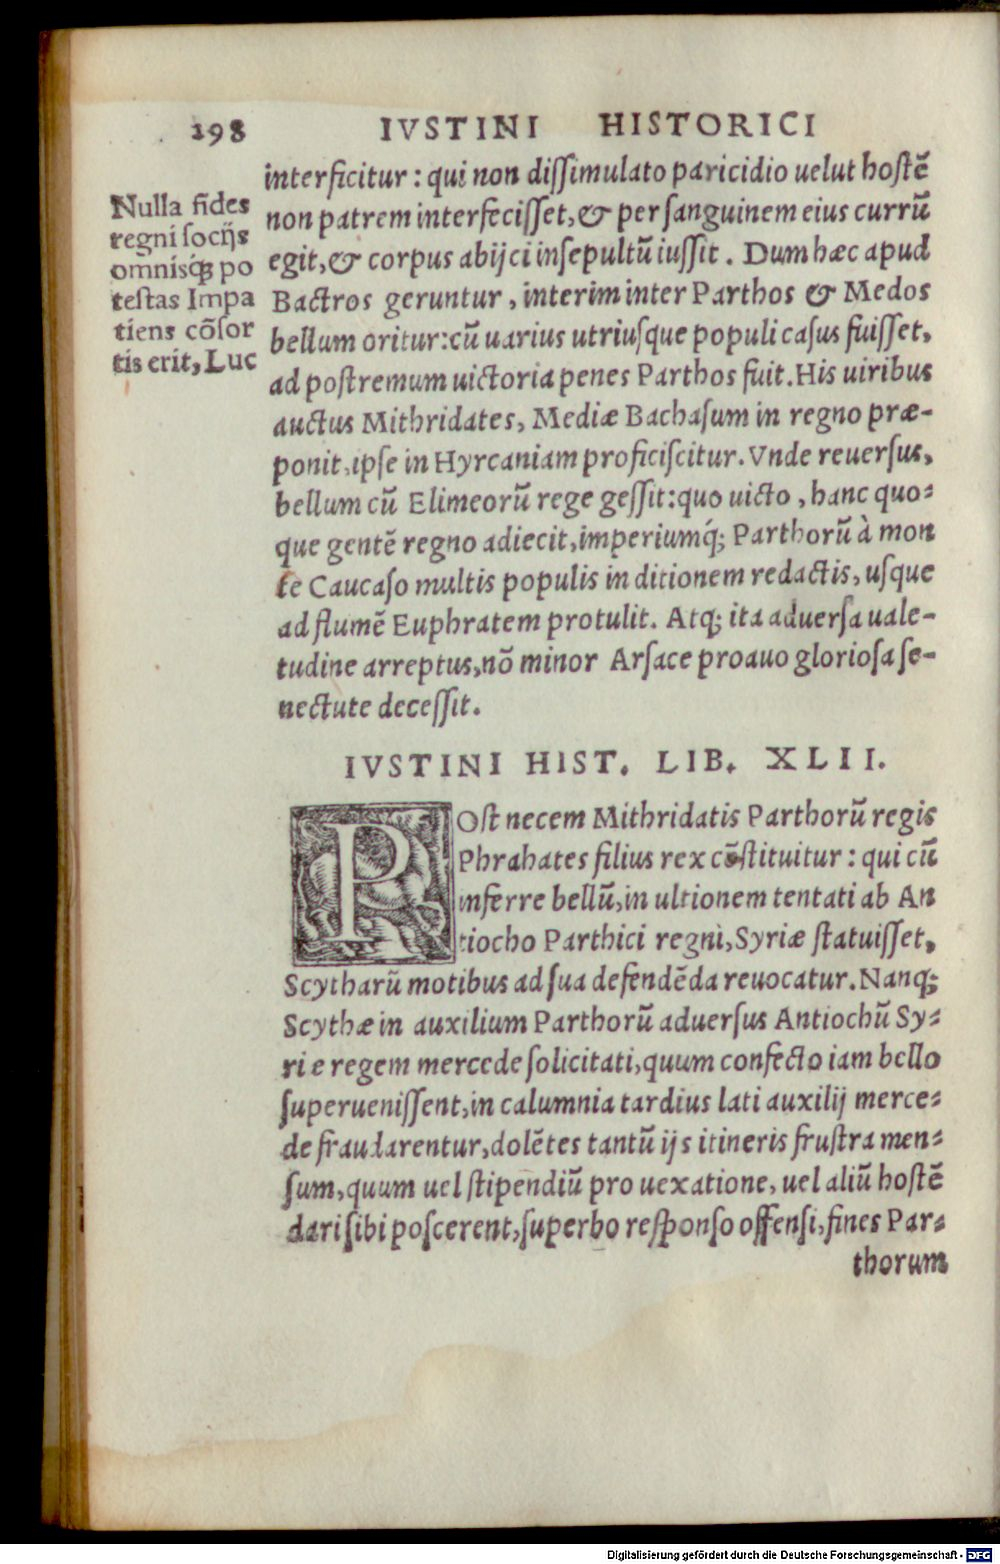 298 IVSTINI HISTORICI
Nulla fides
regni socijs
omnisq́ꝫ po
testas Impa
tiens cõsor
tis erit, Luc
interficitur : qui non dissimulato paricidio uelut hostẽ
non patrem interfecisset, & per sanguinem eius currũ
egit, & corpus abijci insepultũ iussit . Dum hæc apud
Bactros geruntur , interim inter Parthos & Medos
bellum oritur: cũ uarius utriusque populi casus fuisset,
ad postremum uictoria penes Parthos fuit. His uiribus
auctus Mithridates, Mediæ Bachasum in regno præ-
ponit, ipse in Hyrcaniam proficiscitur. Vnde reuersus,
bellum cũ Elimeorũ rege gessit: quo uicto , hanc quo-
que gentẽ regno adiecit, imperiumq́; Parthorũ à mon
te Caucaso multis populis in ditionem redactis, usque
ad flumẽ Euphratem protulit. Atq; ita aduersa uale-
tudine arreptus, nõ minor Arsace proauo gloriosa se-
nectute decessit.
IVSTINI HIST. LIB. XLII.
POst necem Mithridatis Parthorũ regis
Phrahates filius rex cõstituitur : qui cũ
inferre bellũ, in ultionem tentati ab An
tiocho Parthici regni, Syriæ statuisset,
Scytharũ motibus ad sua defendẽda reuocatur. Nanq;
Scythæ in auxilium Parthorũ aduersus Antiochũ Sy-
rie regem mercede solicitati, quum confecto iam bello
superuenissent, in calumnia tardius lati auxilij merce-
de fraudarentur, dolẽtes tantũ ijs itineris frustra men-
sum, quum uel stipendiũ pro uexatione, uel aliũ hostẽ
dari sibi poscerent, superbo responso offensi, fines Par-
thorum
Digitalisierung gefördert durch die Deutsche Forschungsgemeinschaft - DFG